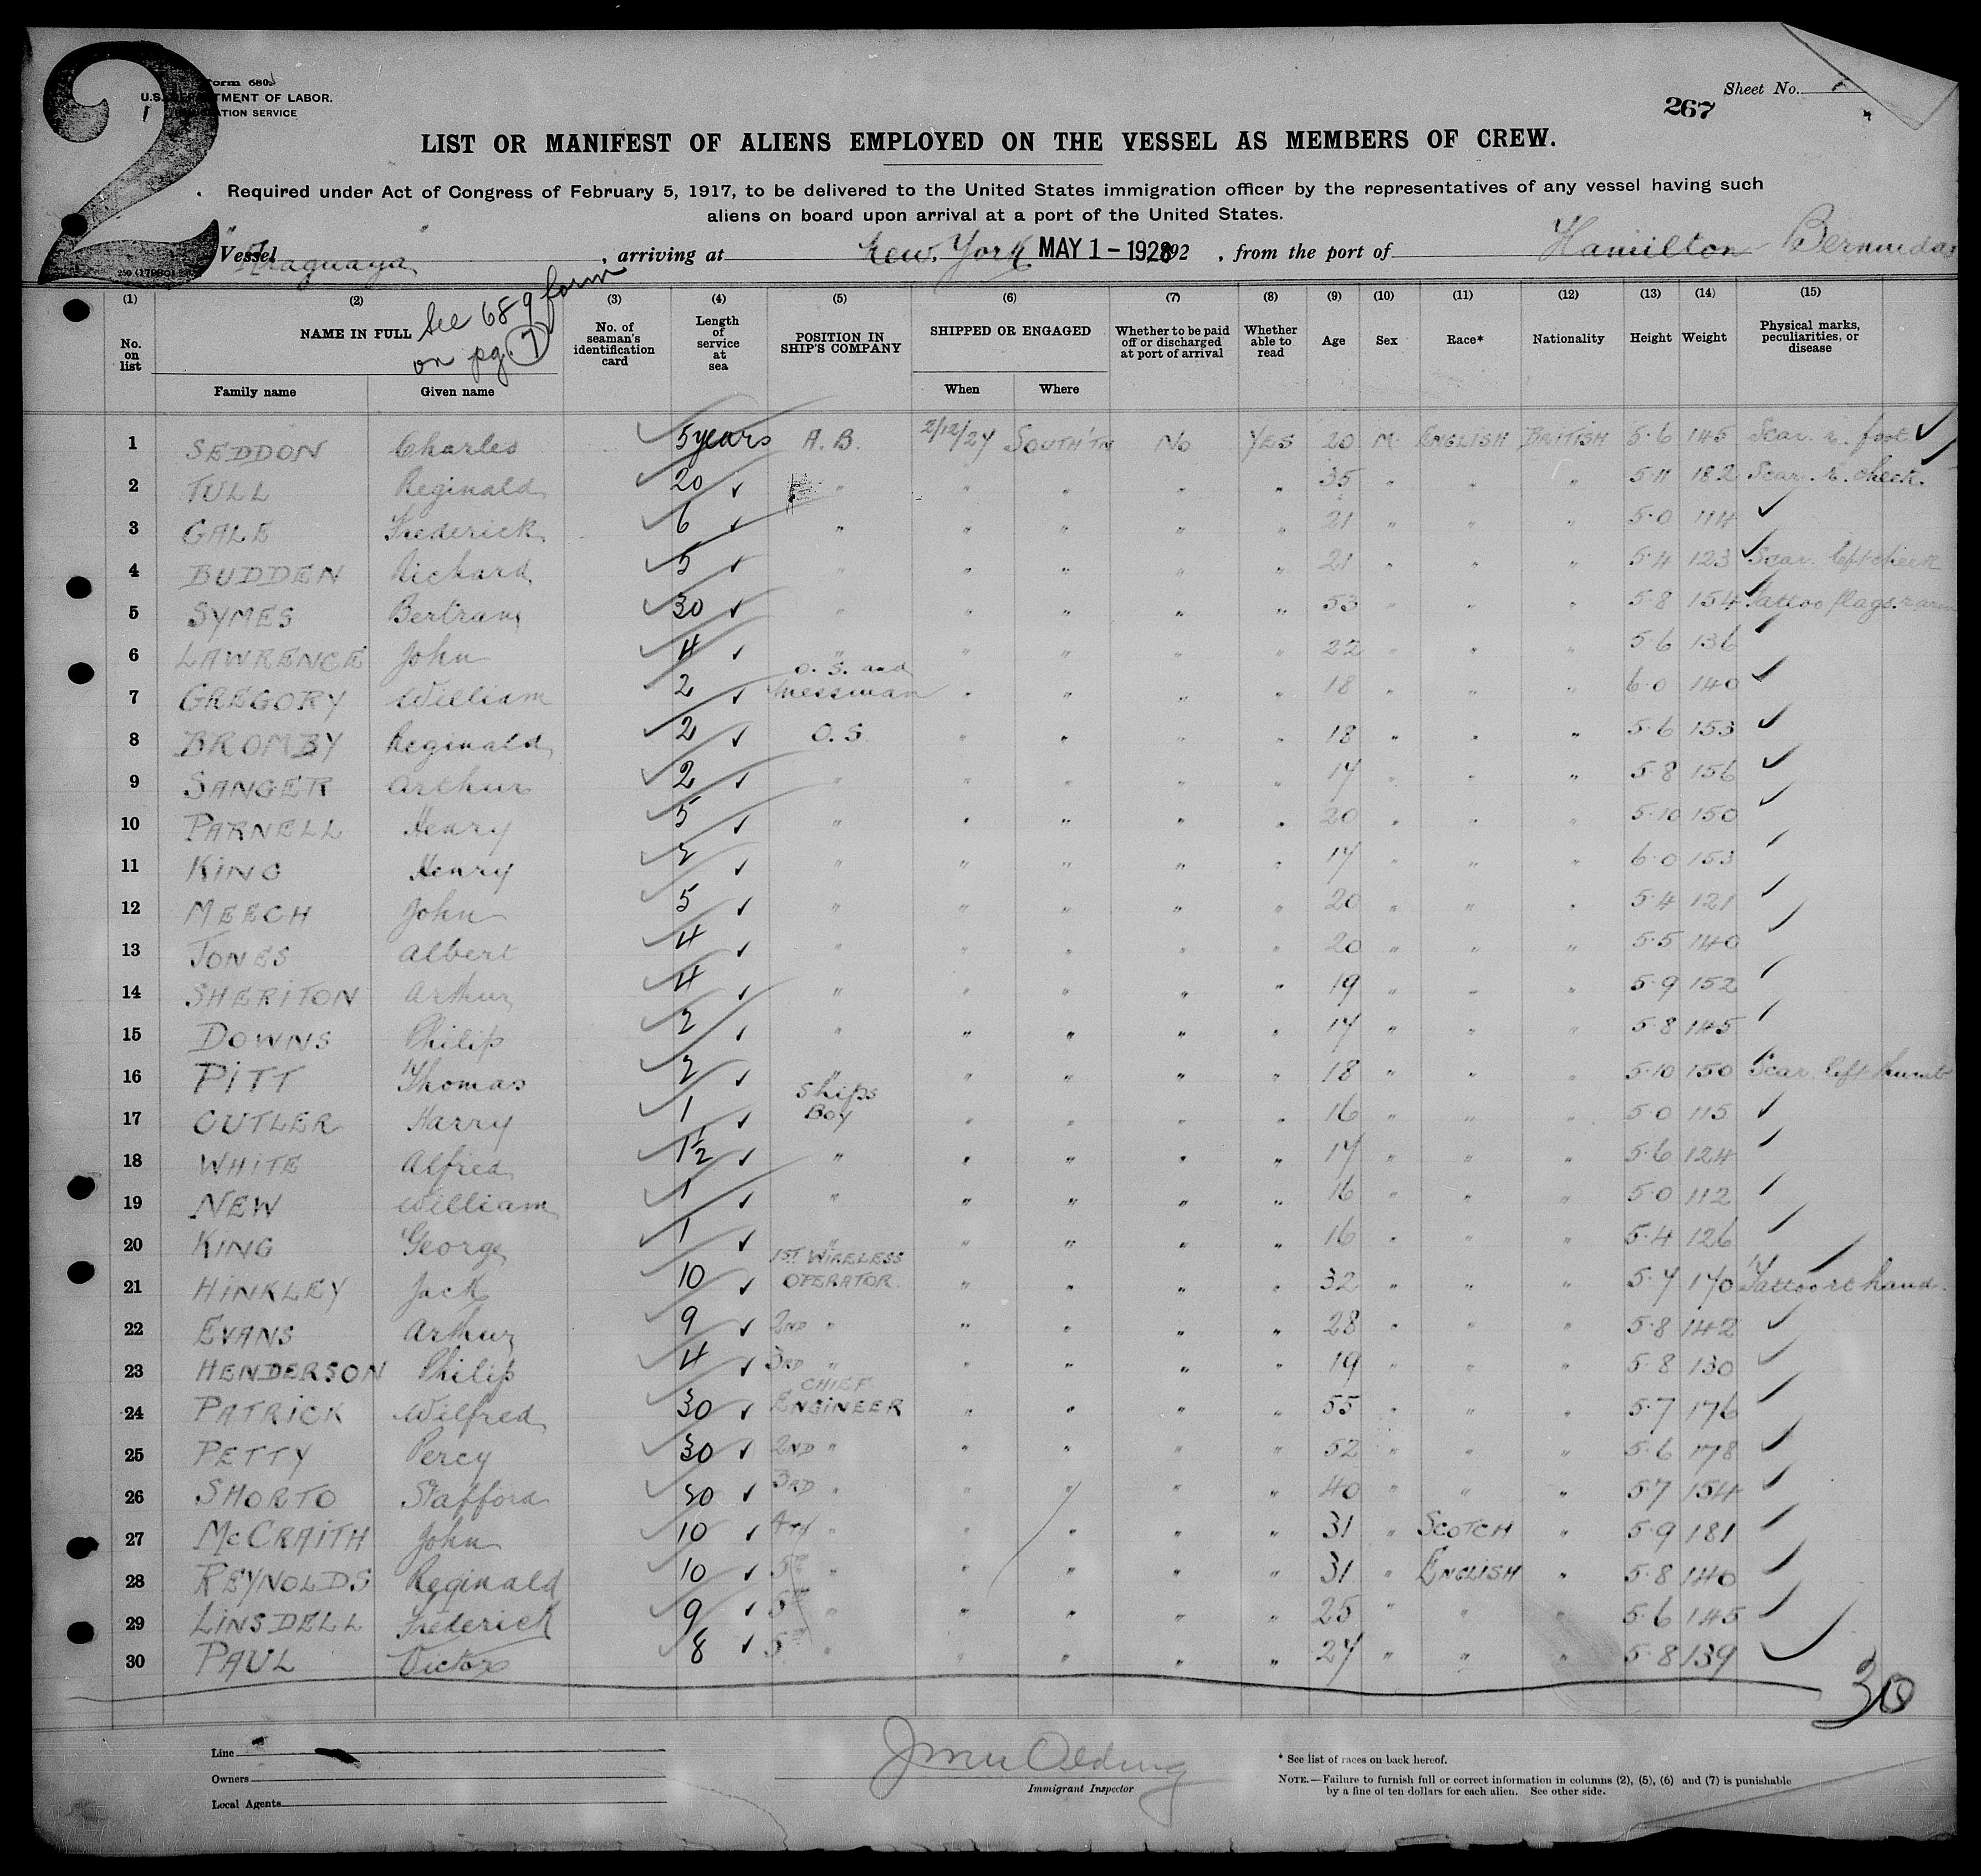 2
Form 680
U.S. DEPARTMENT OF LABOR.
IMMIGRATION SERVICE
Sheet No.
267
LIST OR MANIFEST OF ALIENS EMPLOYED ON THE VESSEL AS MEMBERS OF CREW.
Required under Act of Congress of February 5, 1917, to be delivered to the United States immigration officer by the representatives of any vessel having such
aliens on board upon arrival at a port of the United States.
Vessel "Araguaya" , arriving at New York MAY 1 - 1928 , 192 , from the port of Hamilton Bermudas
See 689 form
on pg. 7
(1) (2) (3) (4) (5) (6) (7) (8) (9) (10) (11) (12) (13) (14) (15)
No. on list NAME IN FULL No. of seaman's identification card Length of service at sea POSITION IN SHIP'S COMPANY SHIPPED OR ENGAGED Whether to be paid off or discharged at port of arrival Whether able to read Age Sex Race* Nationality Height Weight Physical marks, peculiarities, or disease
Family name Given name When Where
1 SEDDON Charles 5 years A.B. 2/12/27 SOUTH'TN No YES 20 M. ENGLISH BRITISH 5.6 145 Scar. r. foot
2 TULL Reginald 20 " " " " " 35 " " " 5.11 182 Scar. r. cheek.
3 GALE Frederick 6 " " " " " 21 " " " 5.0 114
4 BUDDEN Richard 5 " " " " " 21 " " " 5.4 123 Scar. left cheek
5 SYMES Bertram 30 " " " " " 53 " " " 5.8 154 Tattoo flags r arm
6 LAWRENCE John 4 " " " " " 22 " " " 5.6 136
7 GREGORY William 2 O.S. and Messman " " " " 18 " " " 6.0 140
8 BROMBY Reginald 2 O.S. " " " " 18 " " " 5.6 153
9 SANGER Arthur 2 " " " " " 17 " " " 5.8 156
10 PARNELL Henry 5 " " " " " 20 " " " 5.10 150
11 KING Henry 2 " " " " " 17 " " " 6.0 153
12 MEECH John 5 " " " " " 20 " " " 5.4 121
13 JONES Albert 4 " " " " " 20 " " " 5.5 140
14 SHERITON Arthur 4 " " " " " 19 " " " 5.9 152
15 DOWNS Philip 2 " " " " " 17 " " " 5.8 145
16 PITT Thomas 2 " " " " " 18 " " " 5.10 150 Scar left thumb
17 CUTLER Harry 1 Ships Boy " " " " 16 " " " 5.0 115
18 WHITE Alfred 1½ " " " " " 17 " " " 5.6 124
19 NEW William 1 " " " " " 16 " " " 5.0 112
20 KING George 1 " " " " " 16 " " " 5.4 126
21 HINKLEY Jack 10 1ST WIRELESS OPERATOR. " " " " 32 " " " 5.7 170 Tattoo rt hand.
22 EVANS Arthur 9 2ND " " " " " 28 " " " 5.8 142
23 HENDERSON Philip 4 3RD " " " " " 19 " " " 5.8 130
24 PATRICK Wilfred 30 CHIEF ENGINEER " " " " 55 " " " 5.7 176
25 PETTY Percy 30 2ND " " " " " 52 " " " 5.6 178
26 SHORTO Stafford 30 3RD " " " " " 40 " " " 5.7 154
27 McCRAITH John 10 4TH " " " " " 31 " SCOTCH " 5.9 181
28 REYNOLDS Reginald 10 5TH " " " " " 31 " ENGLISH " 5.8 140
29 LINSDELL Frederick 9 5TH " " " " " 25 " " " 5.6 145
30 PAUL Victor 8 5TH " " " " " 27 " " " 5.8 139
30
Line
Owners
Local Agents
Immigrant Inspector
* See list of races on back hereof.
NOTE.—Failure to furnish full or correct information in columns (2), (5), (6) and (7) is punishable
by a fine of ten dollars for each alien. See other side.